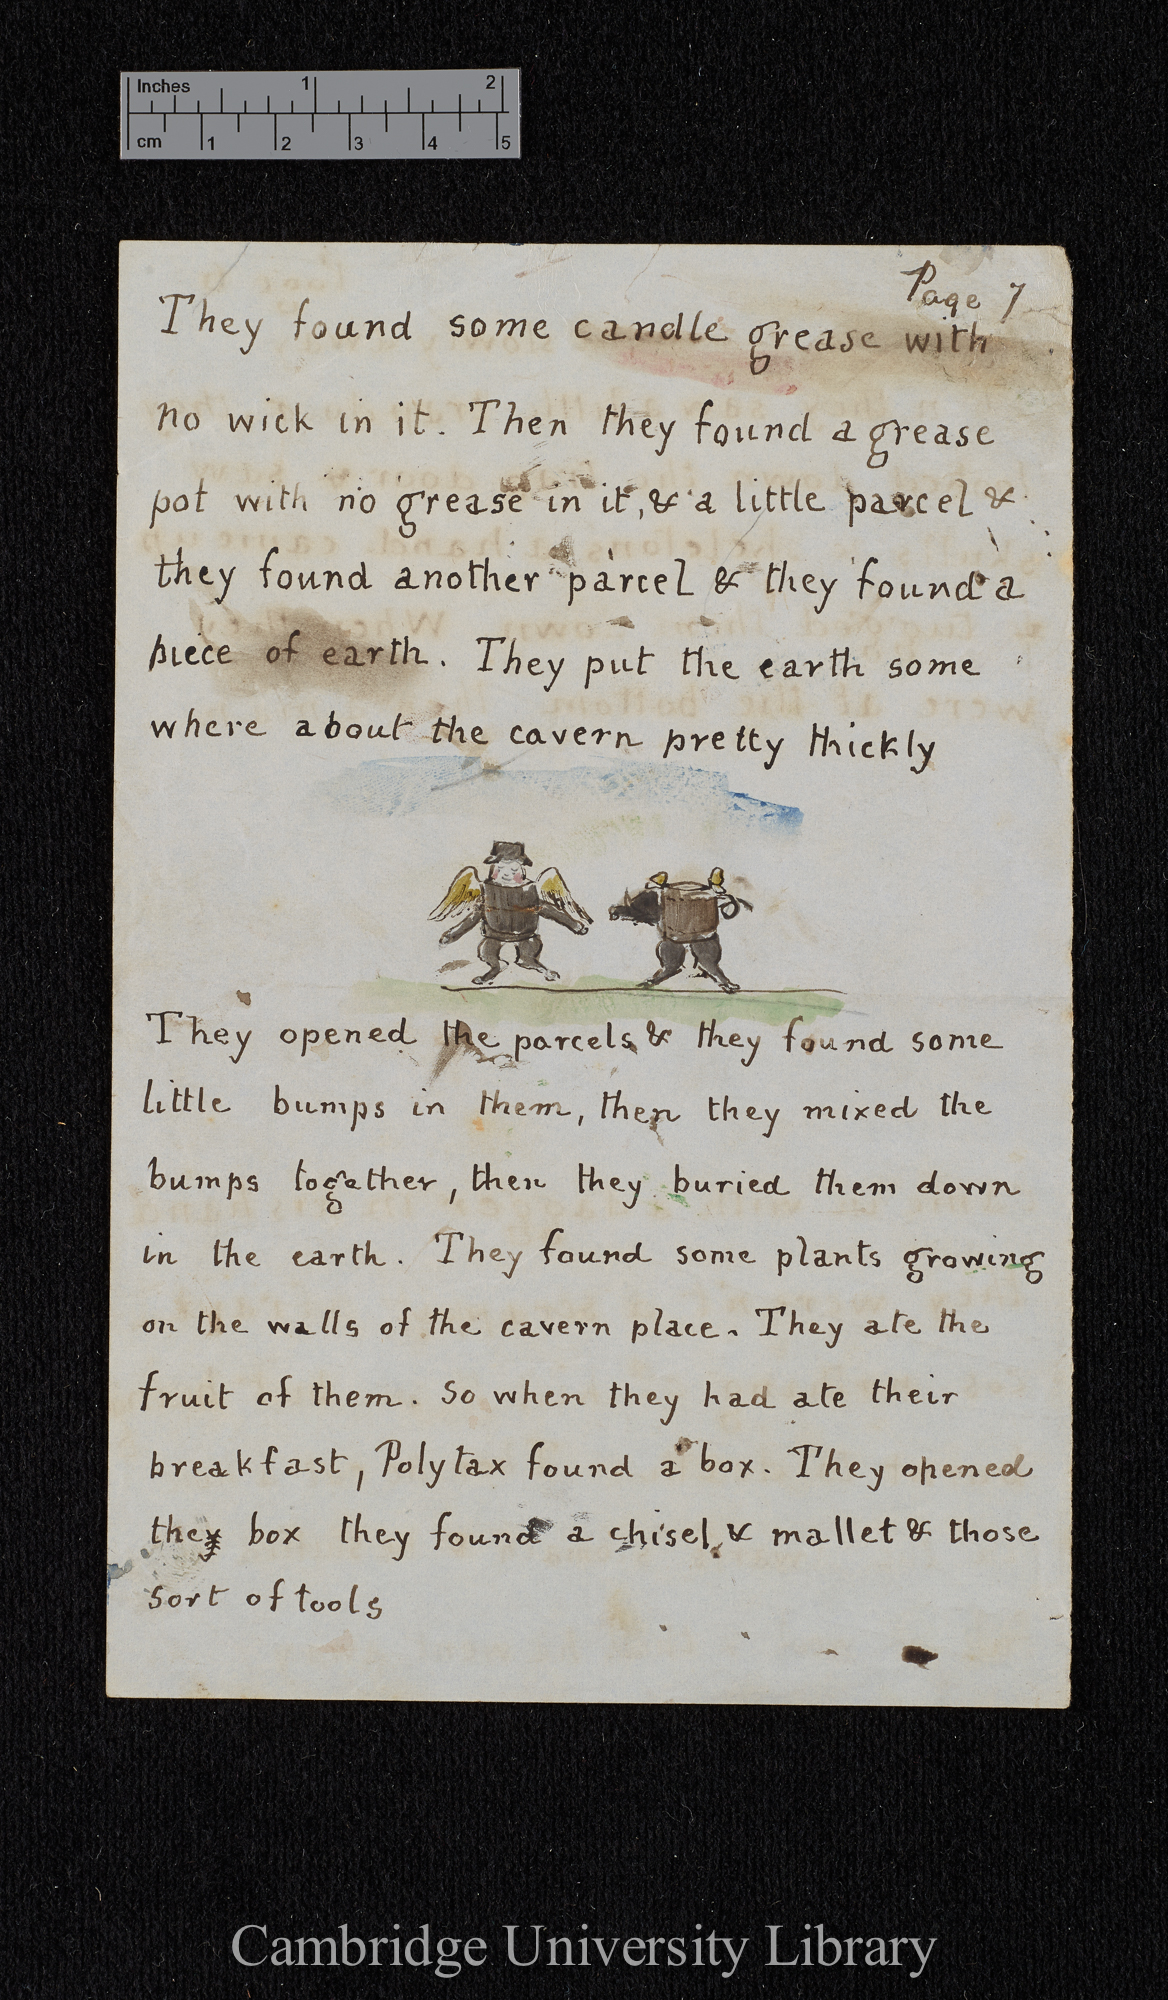 Inches 1 2
cm 1 2 3 4 5
Page 7
They found some candle grease with
no wick in it. Then they found a grease
pot with no grease in it, & a little parcel &
they found another parcel & they found a
piece of earth. They put the earth some
where about the cavern pretty thickly
They opened the parcels & they found some
little bumps in them, then they mixed the
bumps together, then they buried them down
in the earth. They found some plants growing
on the walls of the cavern place. They ate the
fruit of them. So when they had ate their
breakfast, Polytax found a box. They opened
the box they found a chisel, & mallet & those
sort of tools
Cambridge University Library